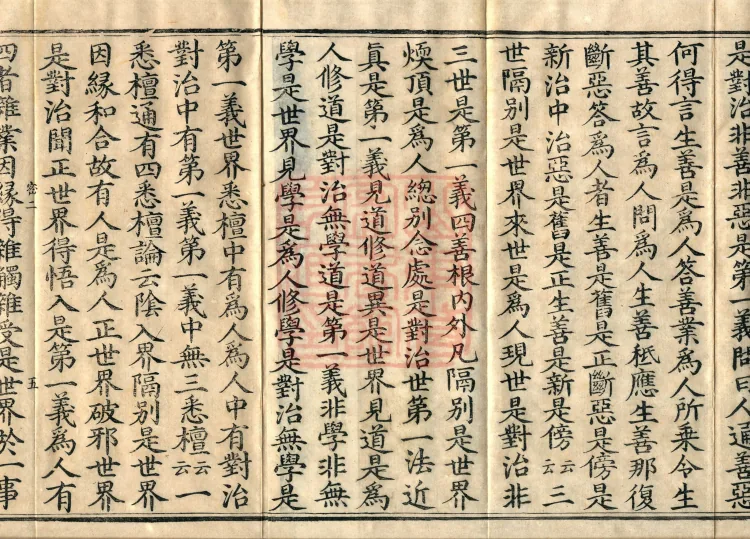 是對治非善非惡是第一義問曰人通善惡
何得言生善是爲人答善業爲人所乗令生
其善故言爲人問爲人生善秖應生善那復
斷惡答爲人者生善是舊是正斷惡是傍是
新治中治惡是舊是正生善是新是傍云云三
世隔別是世界來世是爲人現世是對治非
三世是第一義四善根內外凡隔別是世界
煗頂是爲人總別念處是對治世第一法近
眞是第一義見道修道異是世界見道是爲
人修道是對治無學道是第一義非學非無
學是世界見學是爲人修學是對治無學是
第一義世界悉檀中有爲人爲人中有對治
對治中有第一義第一義中無三悉檀云云一
悉檀通有四悉檀論云陰入界隔別是世界
因緣和合故有人是爲人正世界破邪世界
是對治聞正世界得悟入是第一義為人有
五
四者雜業因緣得雜觸雜受是世界於一事